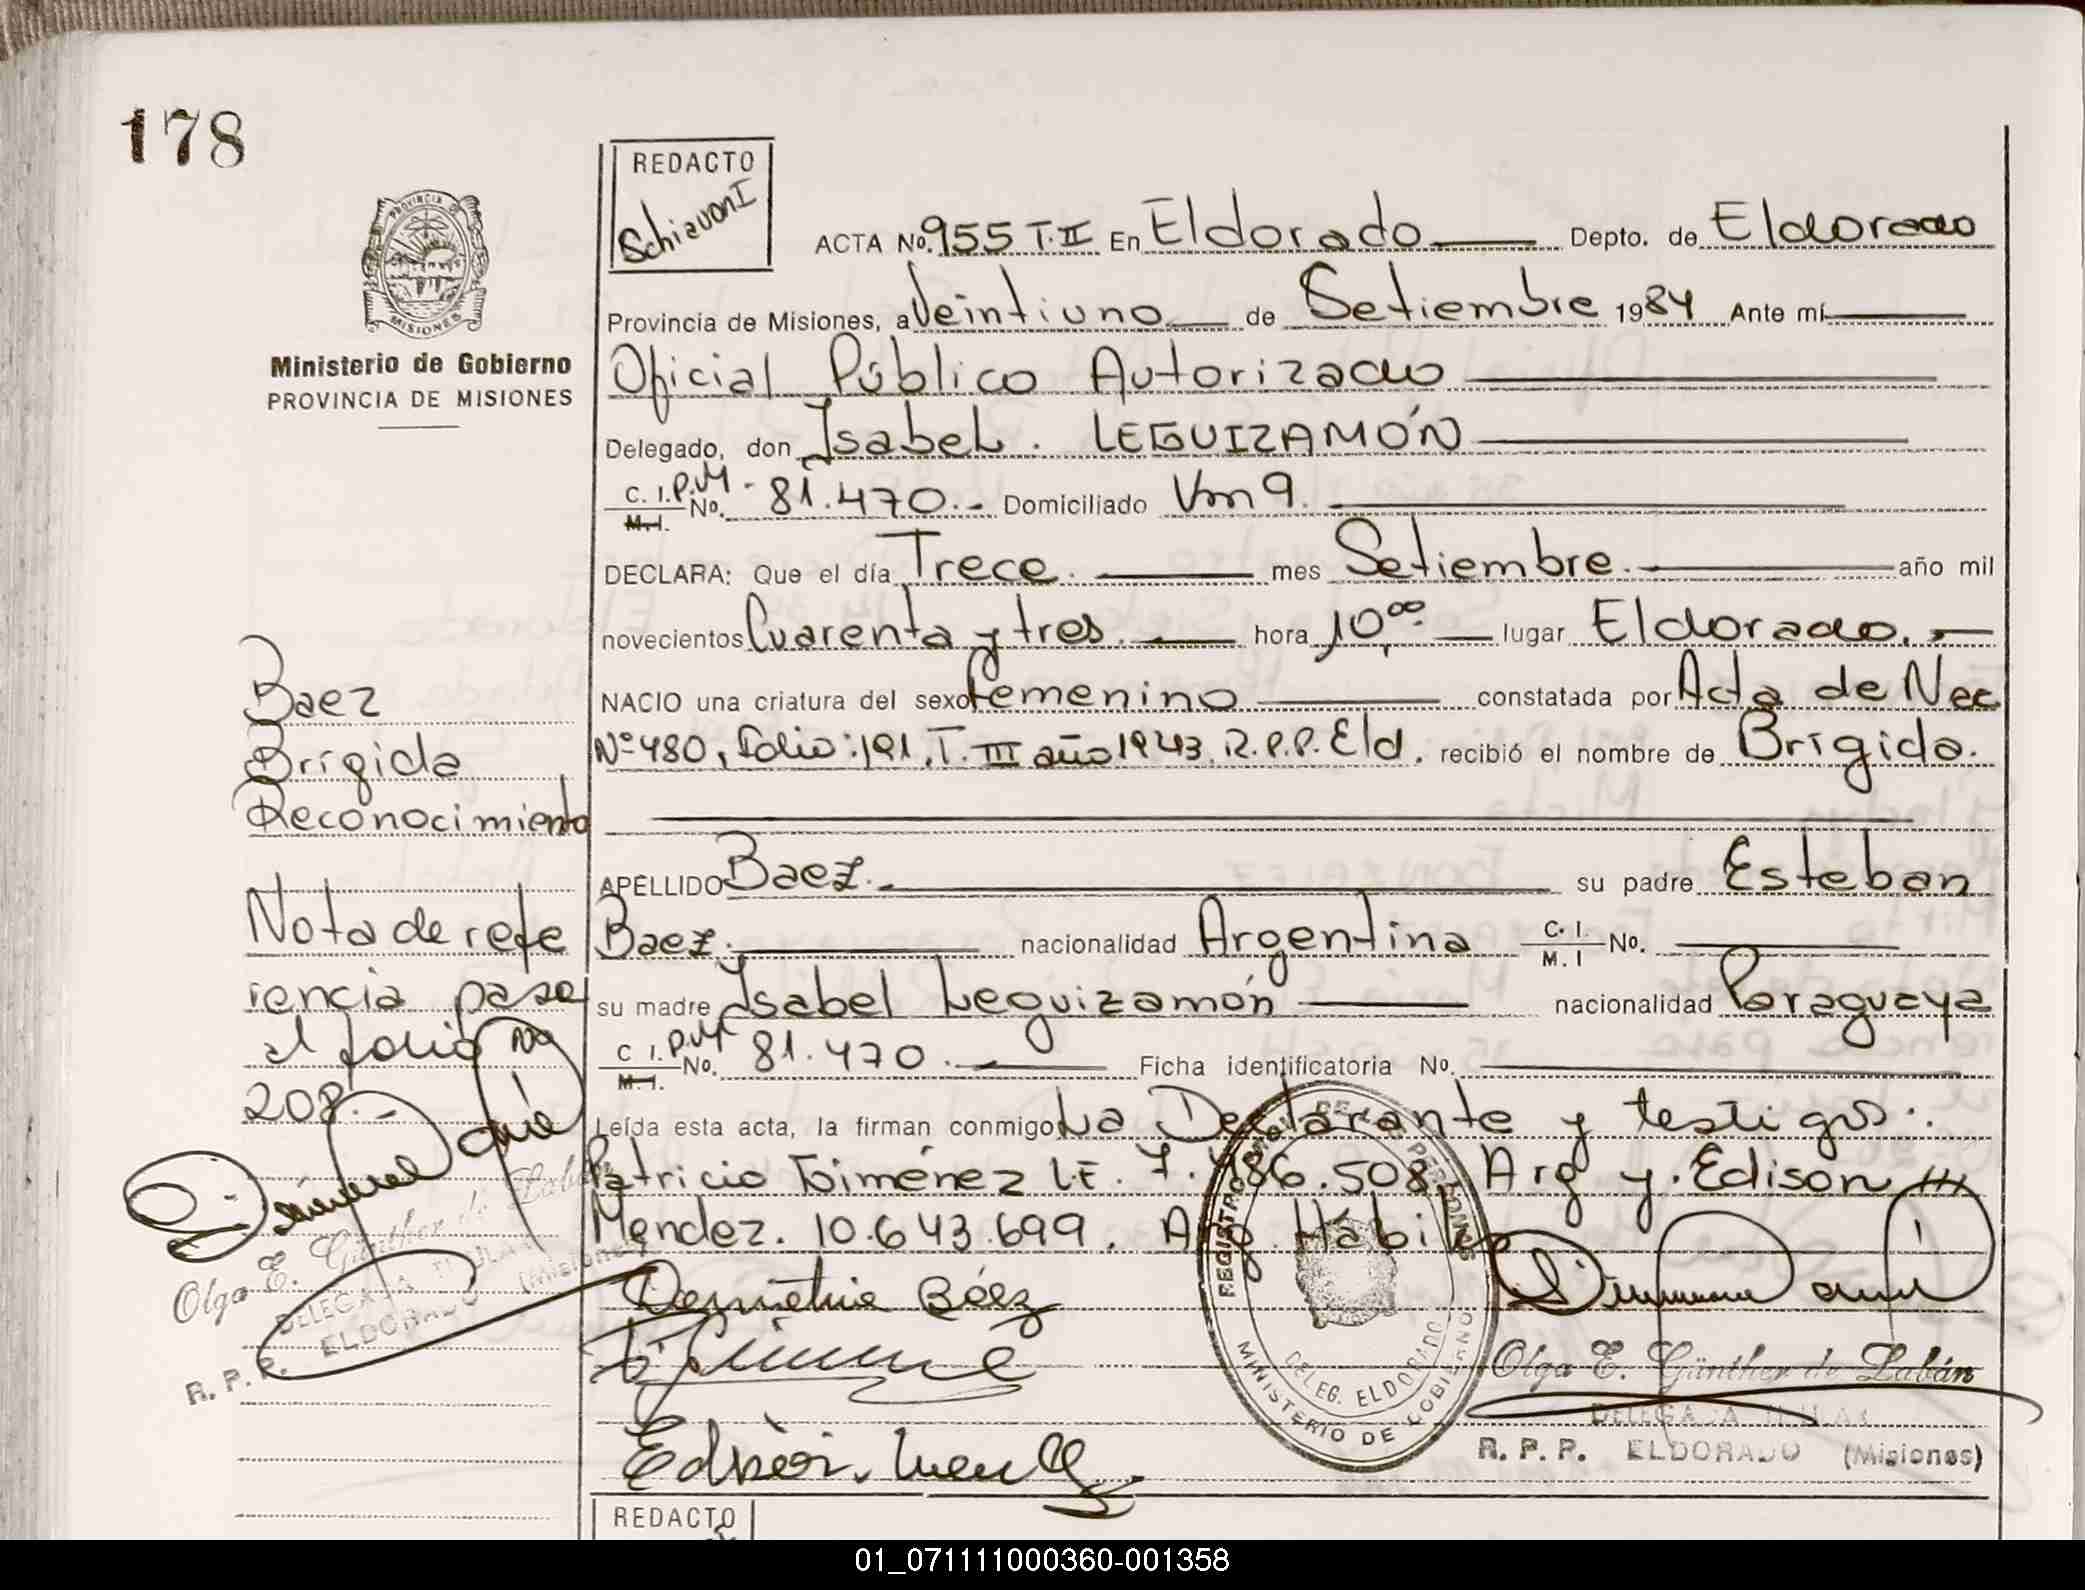 178
REDACTO
SchiavonI
PROVINCIA DE
MISIONES
Ministerio de Gobierno
PROVINCIA DE MISIONES
ACTA No. 955 T.II En Eldorado Depto. de Eldorado
Provincia de Misiones, a Veintiuno de Setiembre 1984 Ante mí
Oficial Público Autorizado
Delegado, don Isabel. LEGUIZAMÓN
C. I. P.M. M.I. No. 81.470.- Domiciliado Km 9.
DECLARA: Que el día Trece. mes Setiembre. año mil
novecientos Cuarenta y tres. hora 10,00. lugar Eldorado.-
NACIO una criatura del sexo femenino constatada por Acta de Nac
Nº 480, Folio: 191, T. III año 1943. R.P.P. Eld. recibió el nombre de Brígida.
APELLIDO Baez. su padre Esteban
Baez. nacionalidad Argentina C. I. M. I No.
su madre Isabel Leguizamón nacionalidad Paraguaya
C I. P.M M.I. No. 81.470.- Ficha identificatoria No.
Leída esta acta, la firman conmigo La Declarante y testigos:
Patricio Giménez L.E. 7.486.508, Arg y. Edison
Mendez. 10.643.699. Arg. Hábiles
Baez
Brígida
Reconocimiento
Nota de refe
rencia pase
al folio Nº
208.-
Olga E. Günther de Labán
DELEGADA TITULAR
R. P. P. ELDORADO (Misiones)
Báez
REGISTRO PROVINCIAL DE LAS PERSONAS
DELEG. ELDORADO
MINISTERIO DE GOBIERNO
Olga E. Günther de Labán
DELEGADA TITULAR
R. P. P. ELDORADO (Misiones)
REDACTO
01_071111000360-001358